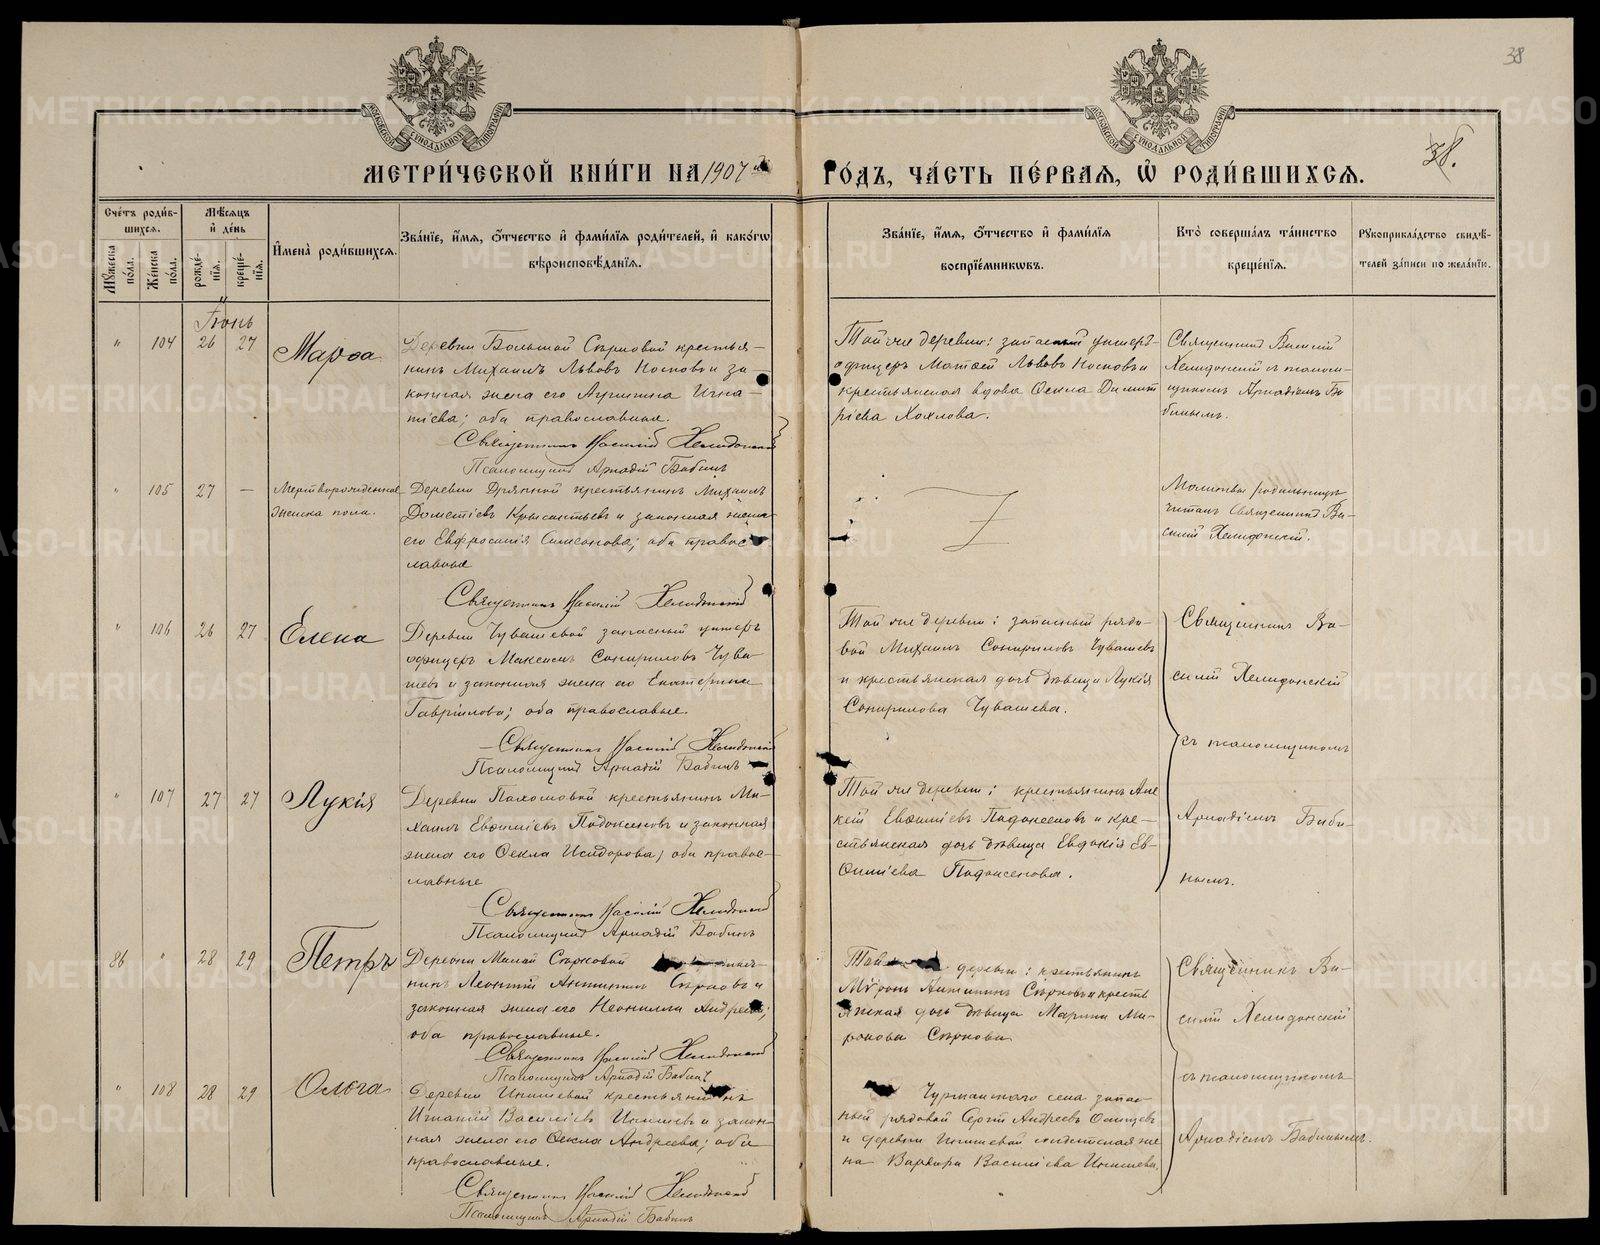 38
38.
МЕТРИ́ЧЕСКОЙ КНИ́ГИ НА 1907 й
ГО́ДЪ, ЧА́СТЬ ПЕ́РВАЯ, Ѡ РОДИ́ВШИХСЯ.
МОСКОВСКОЙ СѴНОДАЛЬНОЙ ТИПОГРАФІИ
МОСКОВСКОЙ СѴНОДАЛЬНОЙ ТИПОГРАФІИ
Сче́тъ роди́в-
шихся.
Мѹ́жеска по́ла.
Же́нска по́ла.
Мѣ́сяцъ
и де́нь
рожде́-
нїя.
креще́-
нїя.
Имена̀ роди́вшихся.
Зва́нїе, и́мя, о́тчество и фами́лїя роди́телей, и како́гѡ
вѣроисповѣ́данїя.
Зва́нїе, и́мя, о́тчество и фами́лїя
воспрїе́мникѡвъ.
Кто̀ соверша́лъ та́инство
креще́нїя.
Рѹкоприкла́дство свидѣ́-
телей за́писи по жела́нїю.
Іюнь
" 104 26 27
Марѳа
Деревни Большой Сѣрковой крестья-
нинъ Михаилъ Львовъ Носковъ и за-
конная жена его Агрипина Игна-
тіева; оба православные.
Священникъ Василій Хелидонскій
Псаломщикъ Аркадій Бабинъ
Той же деревни: запасный унтеръ-
офицеръ Матѳей Львовъ Носковъ и
крестьянская вдова Ѳекла Димит
ріева Хохлова.
Священникъ Василій
Хелидонскій съ псалом-
щикомъ Аркадіемъ Ба
бинымъ.
" 105 27 —
Мертворожденное
женска пола.
Деревни Дрянной крестьянинъ Михаилъ
Дометіевъ Крысантьевъ и законная жена
его Евфросинія Симеонова; оба право-
лавные
Священникъ Василій Хелидонскій
Молитвы родильницѣ
читалъ Священникъ Ва-
силій Хелидонскій.
" 106 26 27
Елена
Деревни Чувашевой запасный унтеръ
офицеръ Максимъ Спиридоновъ Чува-
шевъ и законная жена его Екатерина
Гавріилова; оба православные.
Священникъ Василій Хелидонскій
Псаломщикъ Аркадій Бабинъ
Той же деревни: запасный рядо-
вой Михаилъ Чувашевъ
и крестьянская дочь дѣвица Лукія
Чувашева.
Священникъ Ва-
силій Хелидонскій
съ псаломщикомъ
Аркадіемъ Баби-
нымъ.
" 107 27 27
Лукія
Деревни крестьянинъ Ми-
хаилъ Евѳиміевъ Подоксеновъ и законная
жена его Ѳекла Исидорова; оба право-
лавные
Священникъ Василій Хелидонскій
Псаломщикъ Аркадій Бабинъ
Той же деревни: крестьянинъ Але
ксій Евѳиміевъ Подоксеновъ и кре-
стьянская дочь дѣвица Евдокія Ев-
ѳиміева Подоксенова.
86 " 28 29
Петръ
Деревни Малой Сѣрковой
нинъ Леонтій Антиповъ Сѣрковъ и
законная жена его Неонилла Андреева;
оба православные.
Священникъ Василій Хелидонскій
Псаломщикъ Аркадій Бабинъ
Той деревни: крестьянинъ
Миронъ Антипинъ Сѣрковъ и кресть
янская дочь дѣвица Марина Ми-
ронова Сѣркова
Священникъ Ва-
силій Хелидонскій
съ псаломщикомъ
Аркадіемъ Бабинымъ.
" 108 28 29
Ольга
Деревни крестьянинъ
Игнатій Василіевъ и закон-
ная жена его Ѳекла Андреева; оба
православные.
Священникъ Василій Хелидонскій
Псаломщикъ Аркадій Бабинъ
села запас-
ный рядовой Андреевъ
и деревни жe-
на Варвара Василіева